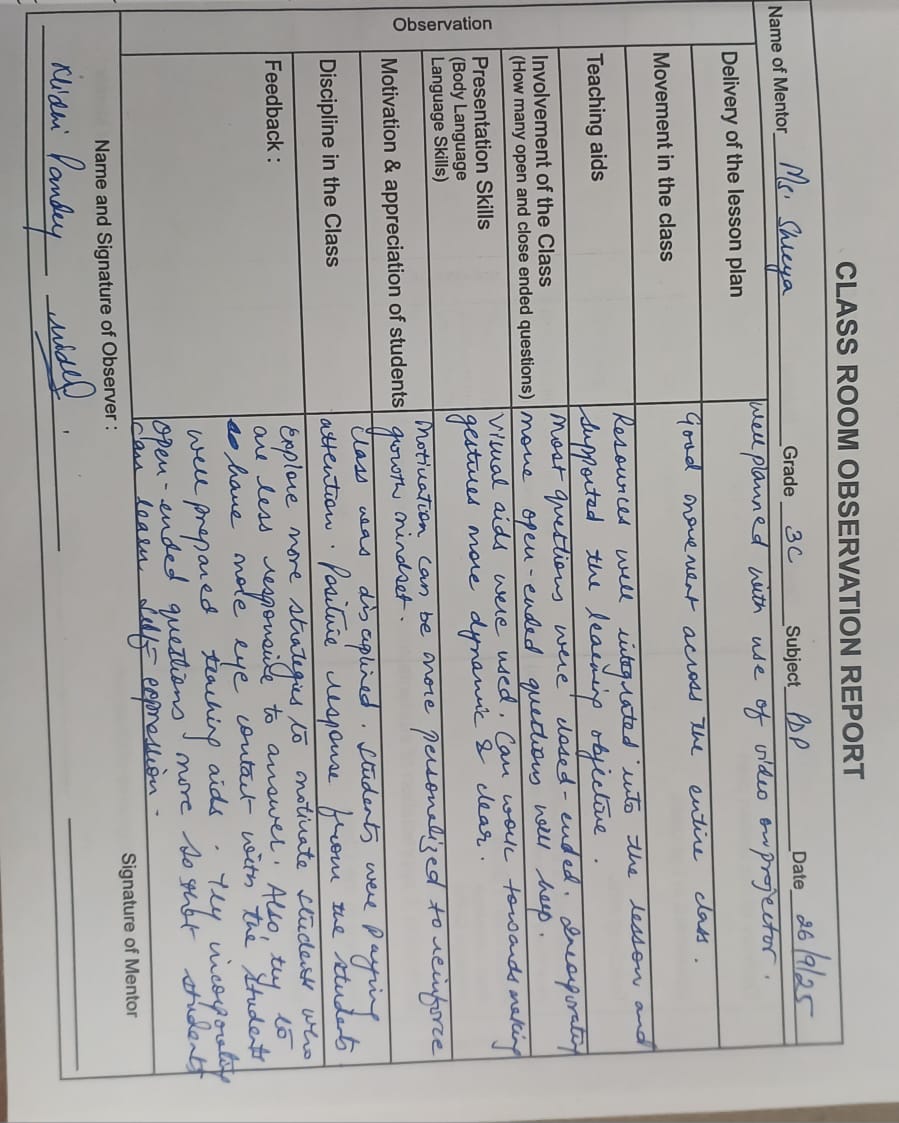 CLASS ROOM OBSERVATION REPORT
Name of Mentor Ms. Shreya Grade 3C Subject PDP Date 26/9/25
Observation
Delivery of the lesson plan
Well planned with use of video on projector.
Movement in the class
Good movement across the entire class.
Teaching aids
Resources well integrated into the lesson and
supported the learning objective.
Involvement of the Class
(How many open and close ended questions)
Most questions were closed-ended. Incorporating
more open-ended questions will help.
Presentation Skills
(Body Language
Language Skills)
Visual aids were used. Can work towards making
gestures more dynamic & clear.
Motivation & appreciation of students
Motivation can be more personalised to reinforce
growth mindset.
Discipline in the Class
Class was disciplined. Students were paying
attention. Positive response from the students
Feedback :
Explore more strategies to motivate students who
are less responsive to answer. Also, try to
have more eye contact with the students
Well prepared teaching aids. Try incorporating
open-ended questions more so that students
can learn self-expression.
Name and Signature of Observer :
Signature of Mentor
Nidhi Pandey Nidhi